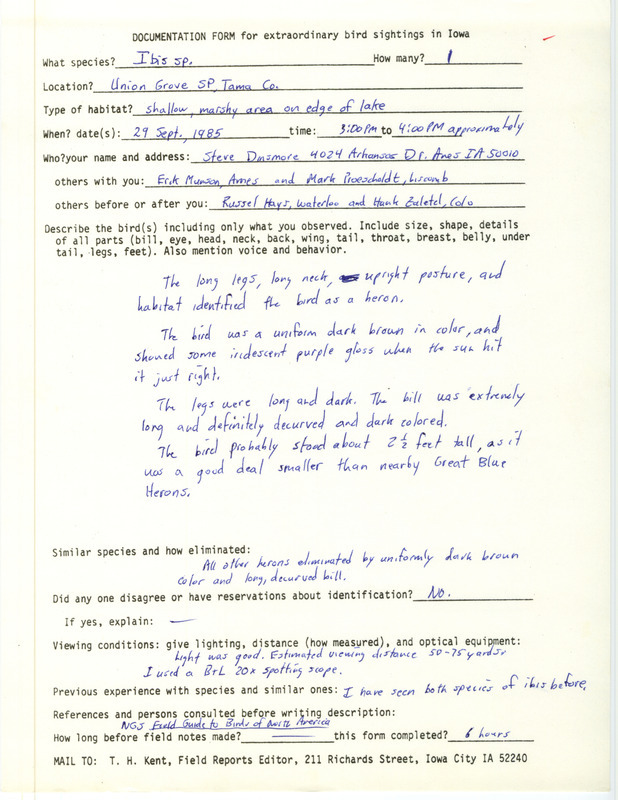 DOCUMENTATION FORM for extraordinary bird sightings in Iowa
What species? Ibis sp. How many? 1
Location? Union Grove SP, Tama Co.
Type of habitat? shallow, marshy area on edge of lake
When? date(s): 29 Sept. 1985 time: 3:00 PM to 4:00 PM approximately
Who?your name and address: Steve Dinsmore 4024 Arkansas Dr. Ames IA 50010
others with you: Erik Munson, Ames and Mark Proescholdt, Liscomb
others before or after you: Russel Hays, Waterloo and Hank Zaletel, Colo
Describe the bird(s) including only what you observed. Include size, shape, details
of all parts (bill, eye, head, neck, back, wing, tail, throat, breast, belly, under
tail, legs, feet). Also mention voice and behavior.
The long legs, long neck, upright posture, and
habitat identified the bird as a heron.
The bird was a uniform dark brown in color, and
showed some iridescent purple gloss when the sun hit
it just right.
The legs were long and dark. The bill was extremely
long and definitely decurved and dark colored.
The bird probably stood about 2 1/2 feet tall, as it
was a good deal smaller than nearby Great Blue
Herons.
Similar species and how eliminated:
All other herons eliminated by uniformly dark brown
color and long, decurved bill.
Did any one disagree or have reservations about identification? No.
If yes, explain: —
Viewing conditions: give lighting, distance (how measured), and optical equipment:
Light was good. Estimated viewing distance 50-75 yards.
I used a B+L 20x spotting scope.
Previous experience with species and similar ones: I have seen both species of ibis before.
References and persons consulted before writing description:
NGS Field Guide to Birds of North America
How long before field notes made? — this form completed? 6 hours
MAIL TO: T. H. Kent, Field Reports Editor, 211 Richards Street, Iowa City IA 52240